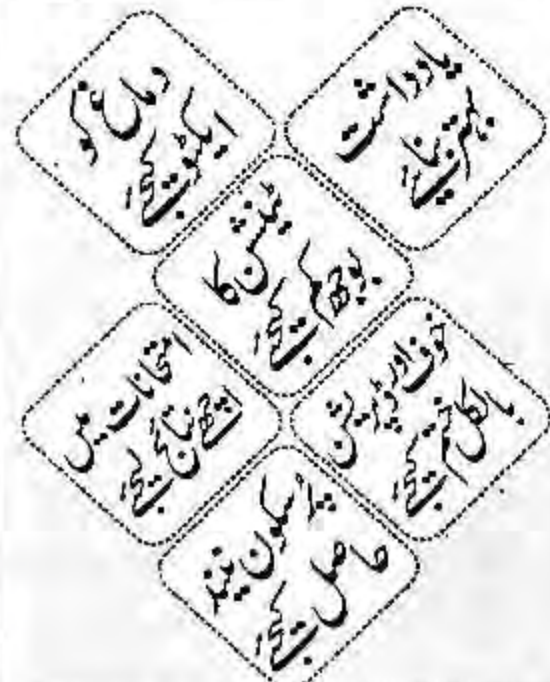 یادداشت
بہتر بنائیے
دماغ کو
ایکٹو کیجئے
ٹینشن کا
بوجھ کم کیجئے
خوف اور ڈپریشن
بالکل ختم کیجئے
امتحانات میں
اچھے نتائج لیجئے
پُر سکون نیند
حاصل کیجئے